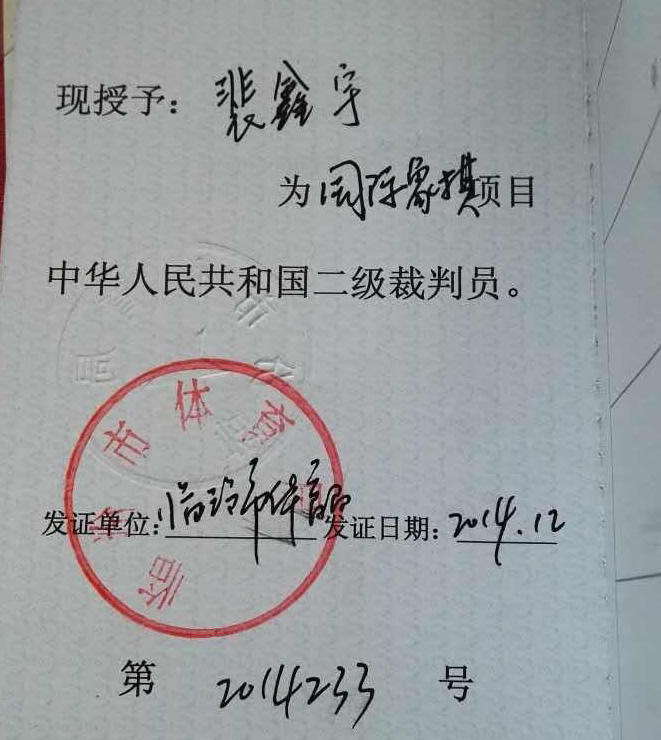 现授予：裴鑫宇
为国际象棋项目
中华人民共和国二级裁判员。
发证单位：临汾市体育局 发证日期：2014.12
第 2014233 号
临汾市体育局